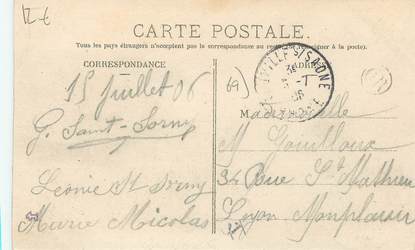 12€
CARTE POSTALE.
Tous les pays étrangers n'acceptent pas la correspondance au recto (se renseigner à la poste).
CORRESPONDANCE
ADRESSE
15 Juillet 06
G. Saint-Sorny
Léonie St Sorny
Marie Nicolas
(69)
VILLE S/ SAONE
RHONE
Mademoiselle
M Gouilloux
34 Rue St Mathieu
Lyon Monplaisir